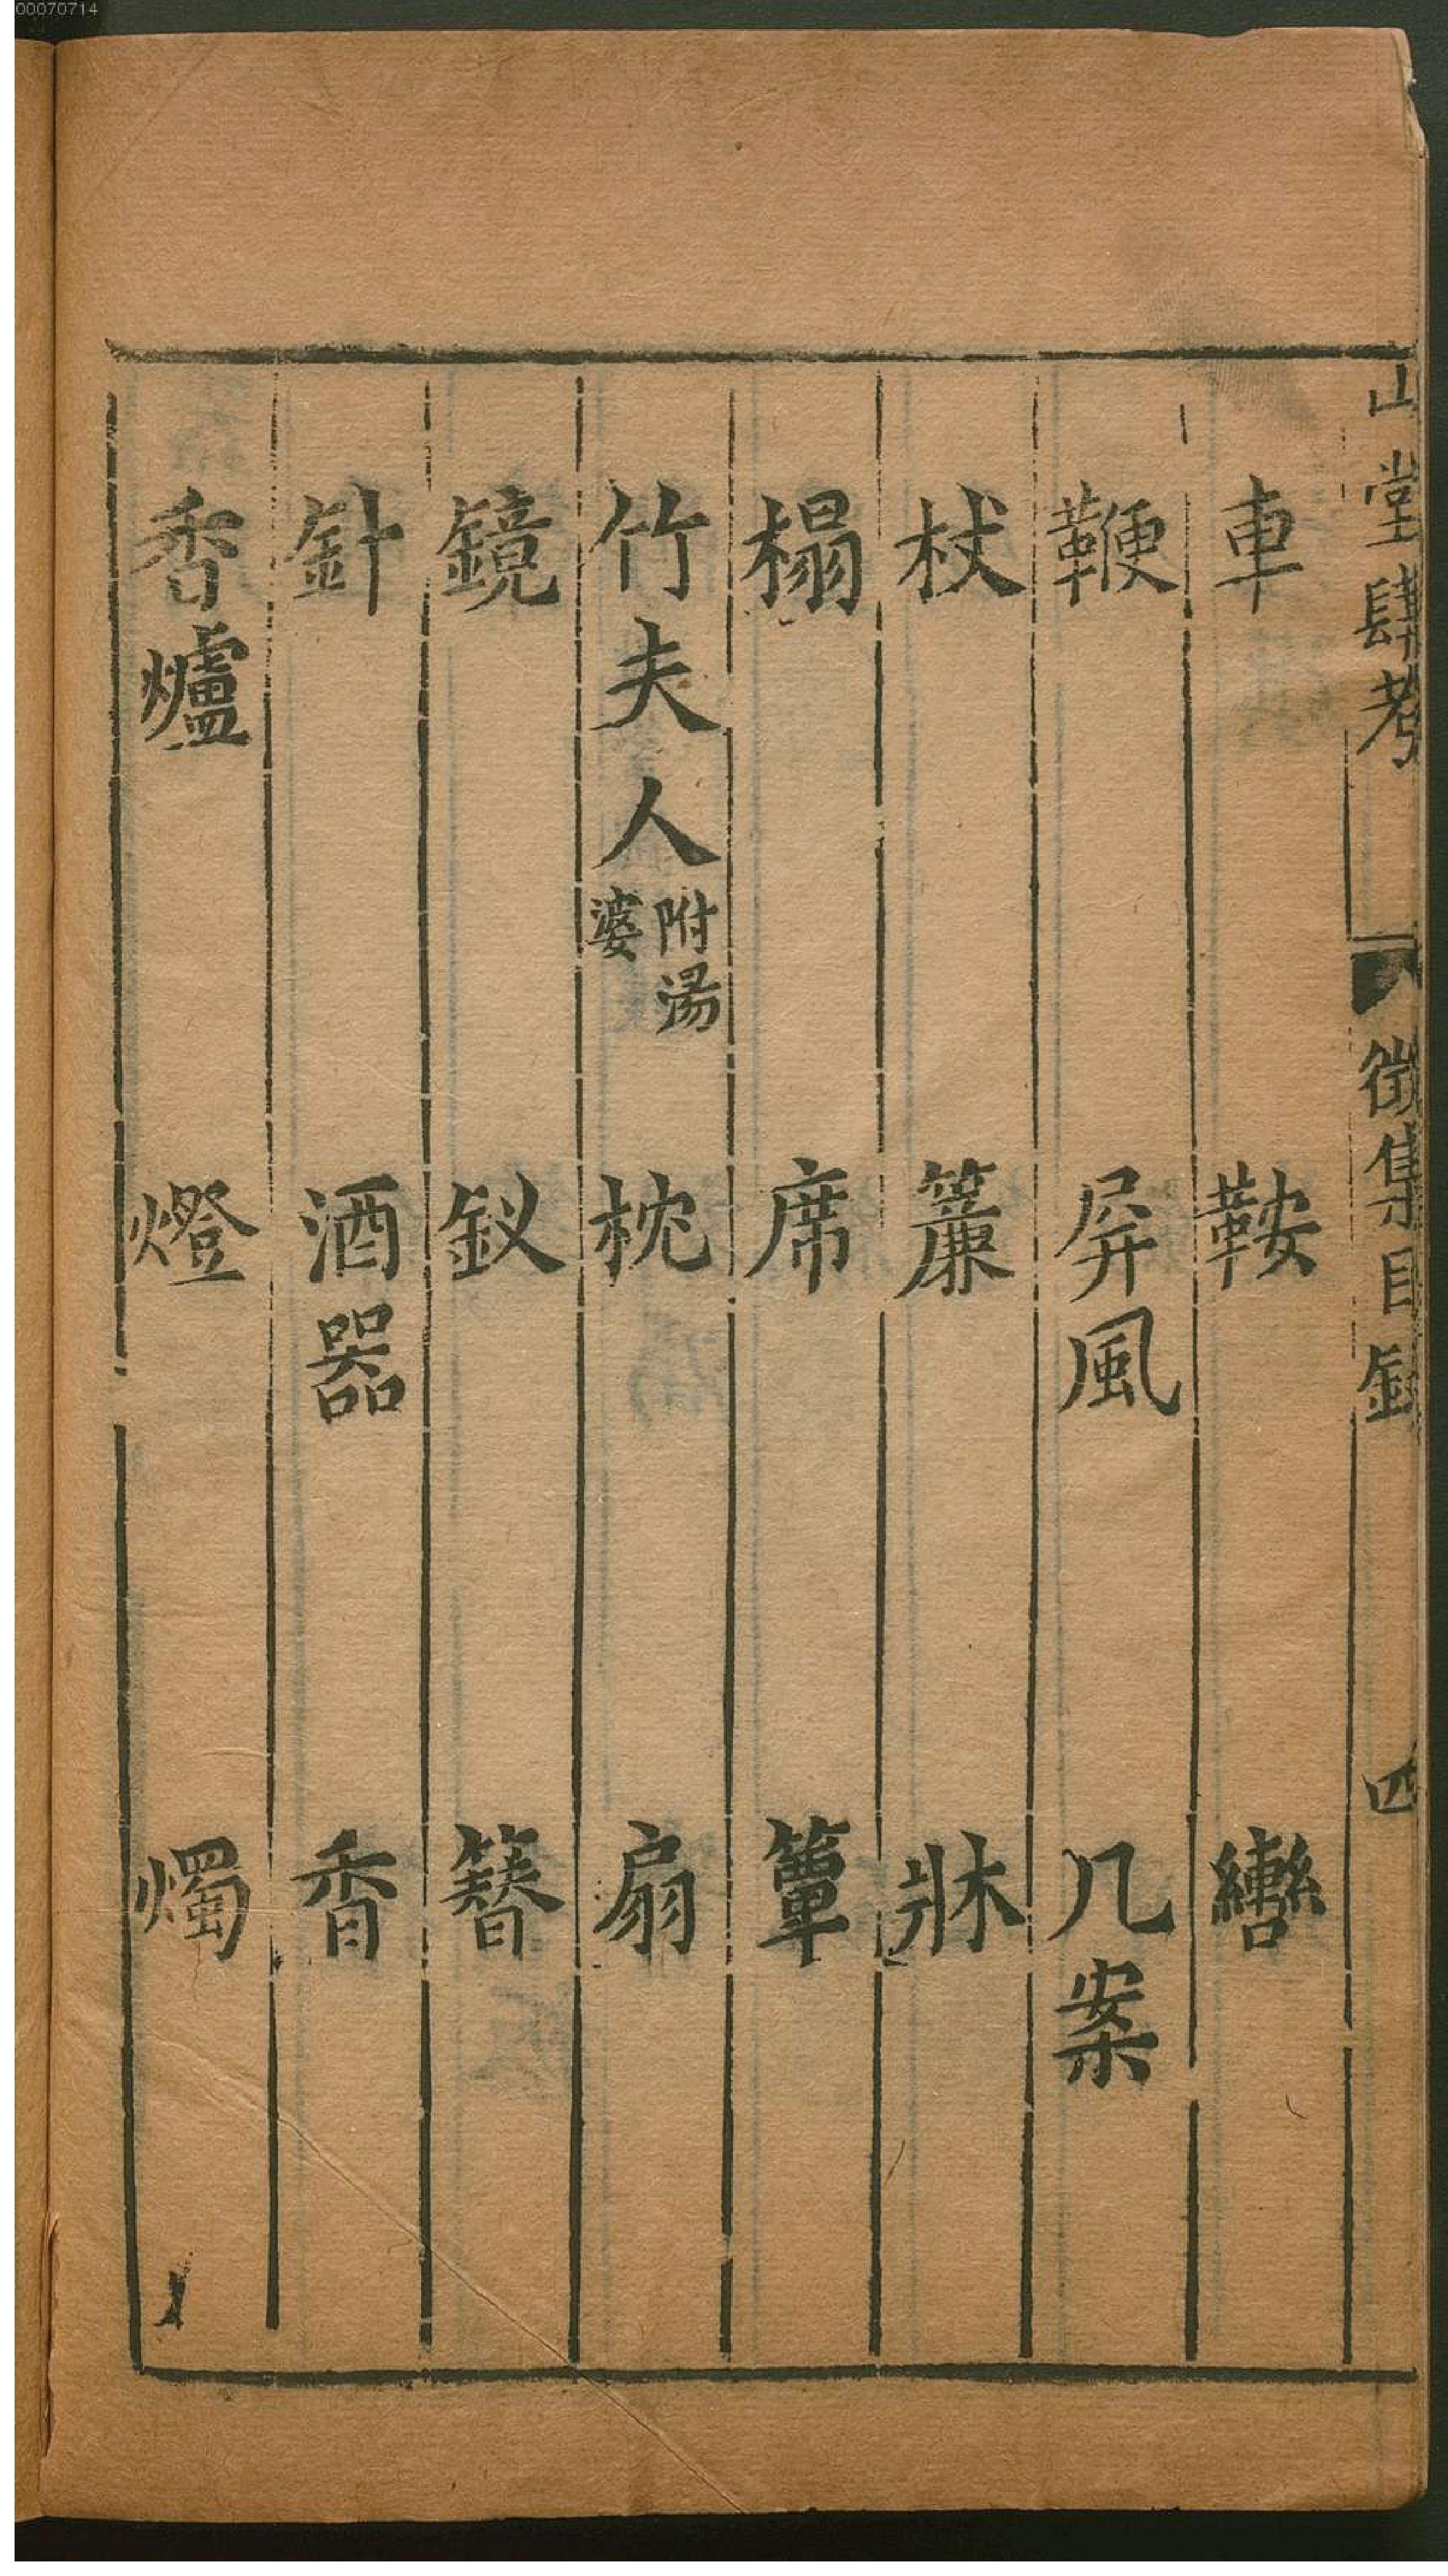 00070714
山堂肆考 徵集目錄 四
車 鞍 轡
鞭 屏風 几案
杖 簾 牀
榻 席 簟
竹夫人附湯婆 枕 扇
鏡 釵 簪
針 酒器 香
香爐 燈 燭